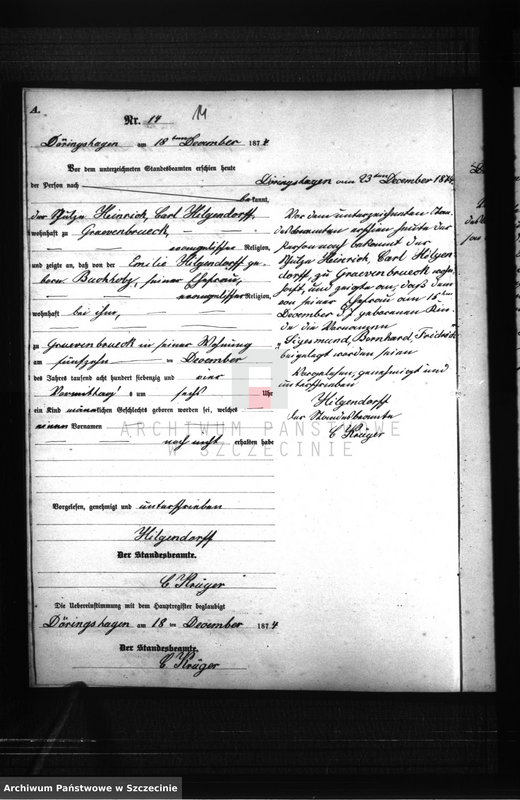 A.
Nr. 14
Döringshagen am 18ten December 1874
Vor dem unterzeichneten Standesbeamten erschien heute
der Person nach
bekannt,
der Schulze Heinrich, Carl Hilgendorff,
wohnhaft zu Graevenbrueck,
evangelischer Religion,
und zeigte an, daß von der Emilie Hilgendorff ge-
boren Buchholz, seiner Ehefrau,
evangelischer Religion,
wohnhaft bei ihm,
zu Graevenbrueck in seiner Wohnung
am fünfzehn December
des Jahres tausend acht hundert siebenzig und vier
Vormittags um sechs Uhr
ein Kind männlichen Geschlechts geboren worden sei, welches
einen Vornamen
noch nicht erhalten habe
Vorgelesen, genehmigt und unterschrieben
Hilgendorff
Der Standesbeamte.
C Krüger
Die Uebereinstimmung mit dem Hauptregister beglaubigt
Döringshagen am 18 ten December 1874
Der Standesbeamte.
C Krüger
Döringshagen am 23ten December 1874
Vor dem unterzeichneten Stan-
desbeamten erschien heute der
Person nach bekannt der
Schulze Heinrich, Carl Hilgen-
dorff, zu Graevenbrueck wohn-
haft, und zeigte an, daß dem
von seiner Ehefrau am 15ten
December geborenen Kin-
de die Vornamen
"Sigesmund, Bernhard, Friedrich"
beigelegt worden seien
Vorgelesen, genehmigt und
unterschrieben
Hilgendorff
Der Standesbeamte
C Krüger
ARCHIWUM PAŃSTWOWE
W SZCZECINIE
Archiwum Państwowe w Szczecinie